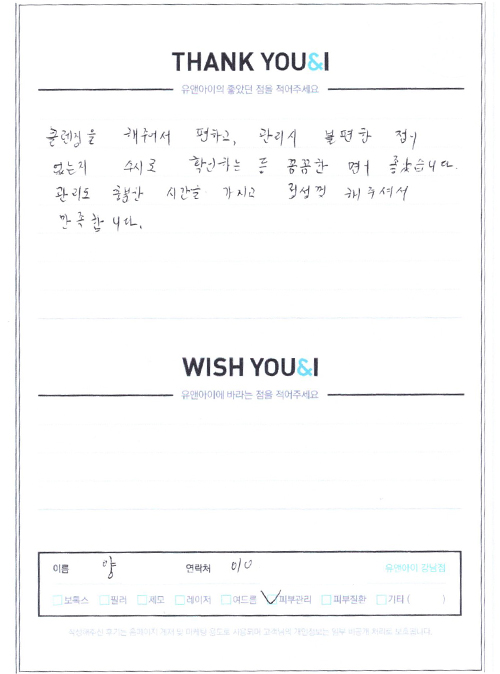 THANK YOU&I
유앤아이의 좋았던 점을 적어주세요
클렌징을 해줘서 편하고, 관리시 불편한 점이
없는지 수시로 확인하는 등 꼼꼼한 면이 좋았습니다.
관리도 충분한 시간을 가지고 정성껏 해주셔서
만족합니다.
WISH YOU&I
유앤아이에 바라는 점을 적어주세요
이름 양 연락처 010 유앤아이 강남점
보톡스 필러 제모 레이저 여드름 피부관리 피부질환 기타 ( )
작성해주신 후기는 홈페이지 게재 및 마케팅 용도로 사용되며 고객님의 개인정보는 일부 비공개 처리로 보호됩니다.